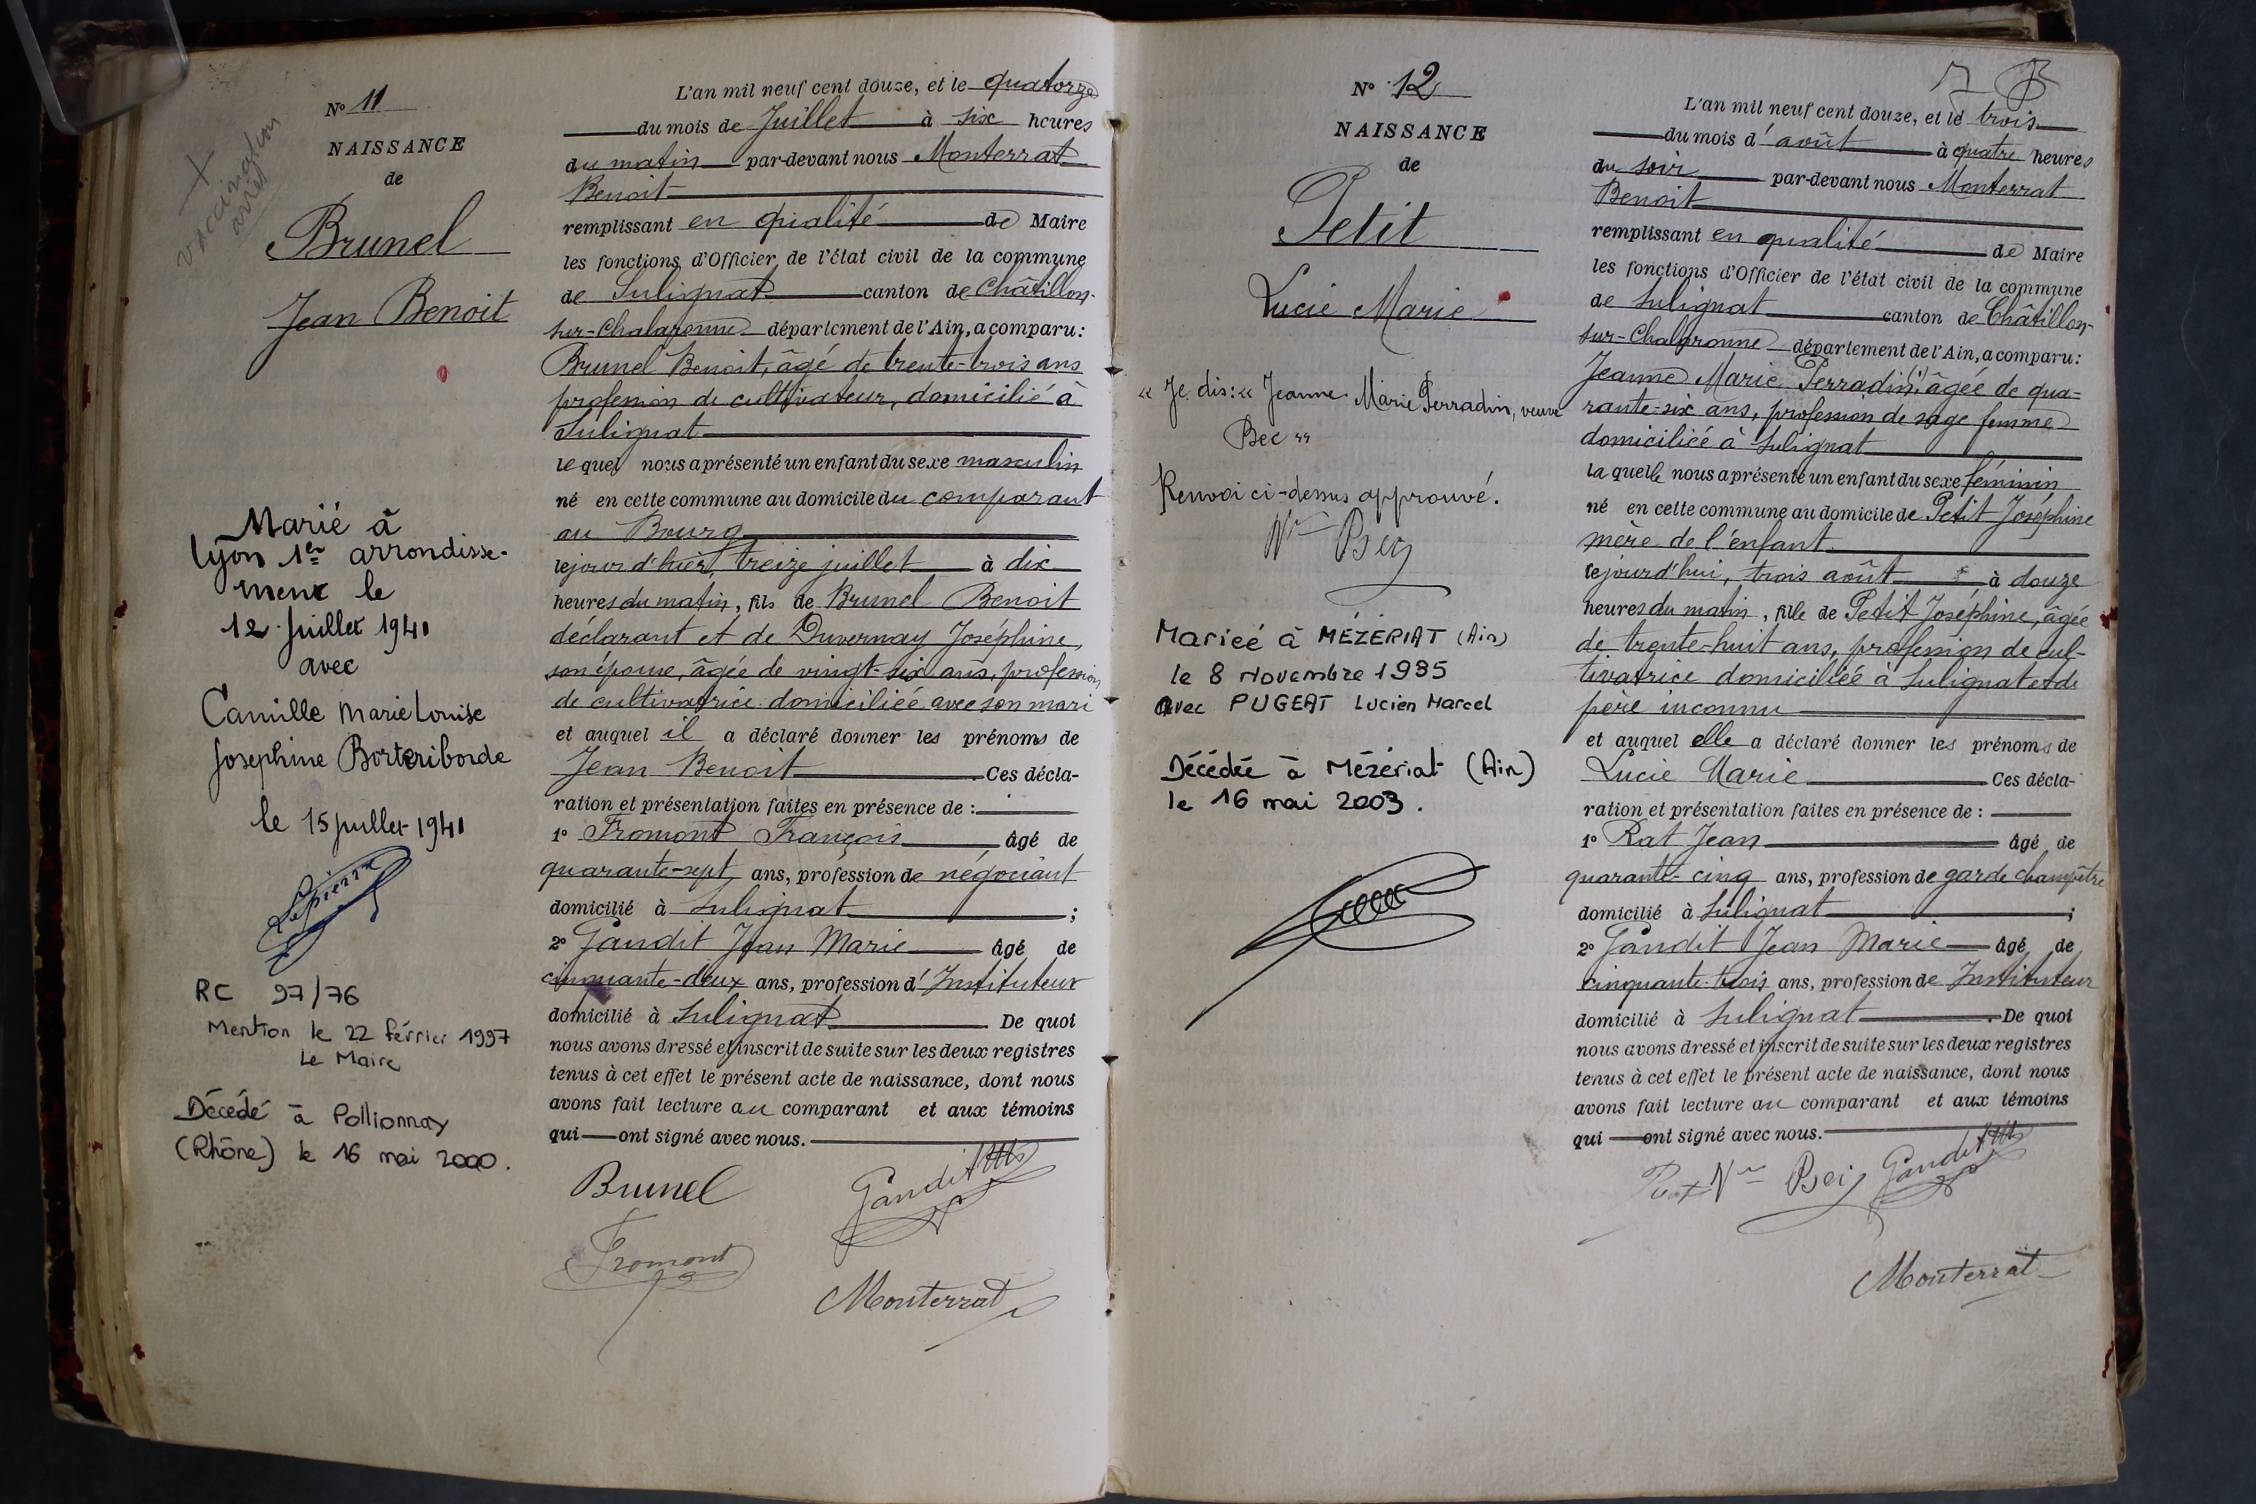 N° 11
NAISSANCE
de
Brunel
Jean Benoit
Marié à
Lyon 1er arrondisse-
ment le
12 Juillet 1941
avec
Camille Marie Louise
Josephine
le 15 juillet 1941
RC 97/76
Mention le 22 février 1997
Le Maire
Décédé à Pollionnay
(Rhône) le 16 mai 2000.
L'an mil neuf cent douze, et le quatorze
du mois de Juillet à six heures
du matin par-devant nous Monterrat
Benoit
remplissant en qualité de Maire
les fonctions d'Officier de l'état civil de la commune
de Sulignat canton de Châtillon-
sur-Chalaronne département de l'Ain, a comparu :
Brunel Benoit, âgé de trente-trois ans
profession de cultivateur, domicilié à
Sulignat
lequel nous a présenté un enfant du sexe masculin
né en cette commune au domicile du comparant
au Bourg
le jour d'hier, treize juillet à dix
heures du matin, fils de Brunel Benoit
déclarant et de Duvernay Joséphine,
son épouse, âgée de vingt-six ans, profession
de cultivatrice domiciliée avec son mari
et auquel il a déclaré donner les prénoms de
Jean Benoit Ces décla-
ration et présentation faites en présence de :
1° Fromont François âgé de
quarante-sept ans, profession de négociant
domicilié à Sulignat ;
2° Gandit Jean Marie âgé de
cinquante-deux ans, profession d'Instituteur
domicilié à Sulignat De quoi
nous avons dressé et inscrit de suite sur les deux registres
tenus à cet effet le présent acte de naissance, dont nous
avons fait lecture au comparant et aux témoins
qui ont signé avec nous.
Brunel Gandit
Fromont
Monterrat
N° 12
NAISSANCE
de
Petit
Lucie Marie
« Je dis : « Jeanne Marie Perradin, veuve
Bec »
Renvoi ci-dessus approuvé.
Mariée à MÉZÉRIAT (Ain)
le 8 novembre 1935
avec PUGEAT Lucien Marcel
Décédée à Mézériat (Ain)
le 16 mai 2003.
L'an mil neuf cent douze, et le trois
du mois d'août à quatre heures
du soir par-devant nous Monterrat
Benoit
remplissant en qualité de Maire
les fonctions d'Officier de l'état civil de la commune
de Sulignat canton de Châtillon-
sur-Chalaronne département de l'Ain, a comparu :
Jeanne Marie Perradin, âgée de qua-
rante-six ans, profession de sage femme
domiciliée à Sulignat
laquelle nous a présenté un enfant du sexe féminin
né en cette commune au domicile de Petit Joséphine
mère de l'enfant
le jourd'hui, trois août à douze
heures du matin, fille de Petit Joséphine, âgée
de trente-huit ans, profession de cul-
tivatrice domiciliée à Sulignat et de
père inconnu
et auquel elle a déclaré donner les prénoms de
Lucie Marie Ces décla-
ration et présentation faites en présence de :
1° Rat Jean âgé de
quarante-cinq ans, profession de garde champêtre
domicilié à Sulignat ;
2° Gandit Jean Marie âgé de
cinquante-trois ans, profession de Instituteur
domicilié à Sulignat De quoi
nous avons dressé et inscrit de suite sur les deux registres
tenus à cet effet le présent acte de naissance, dont nous
avons fait lecture au comparant et aux témoins
qui ont signé avec nous.
Gandit
Monterrat